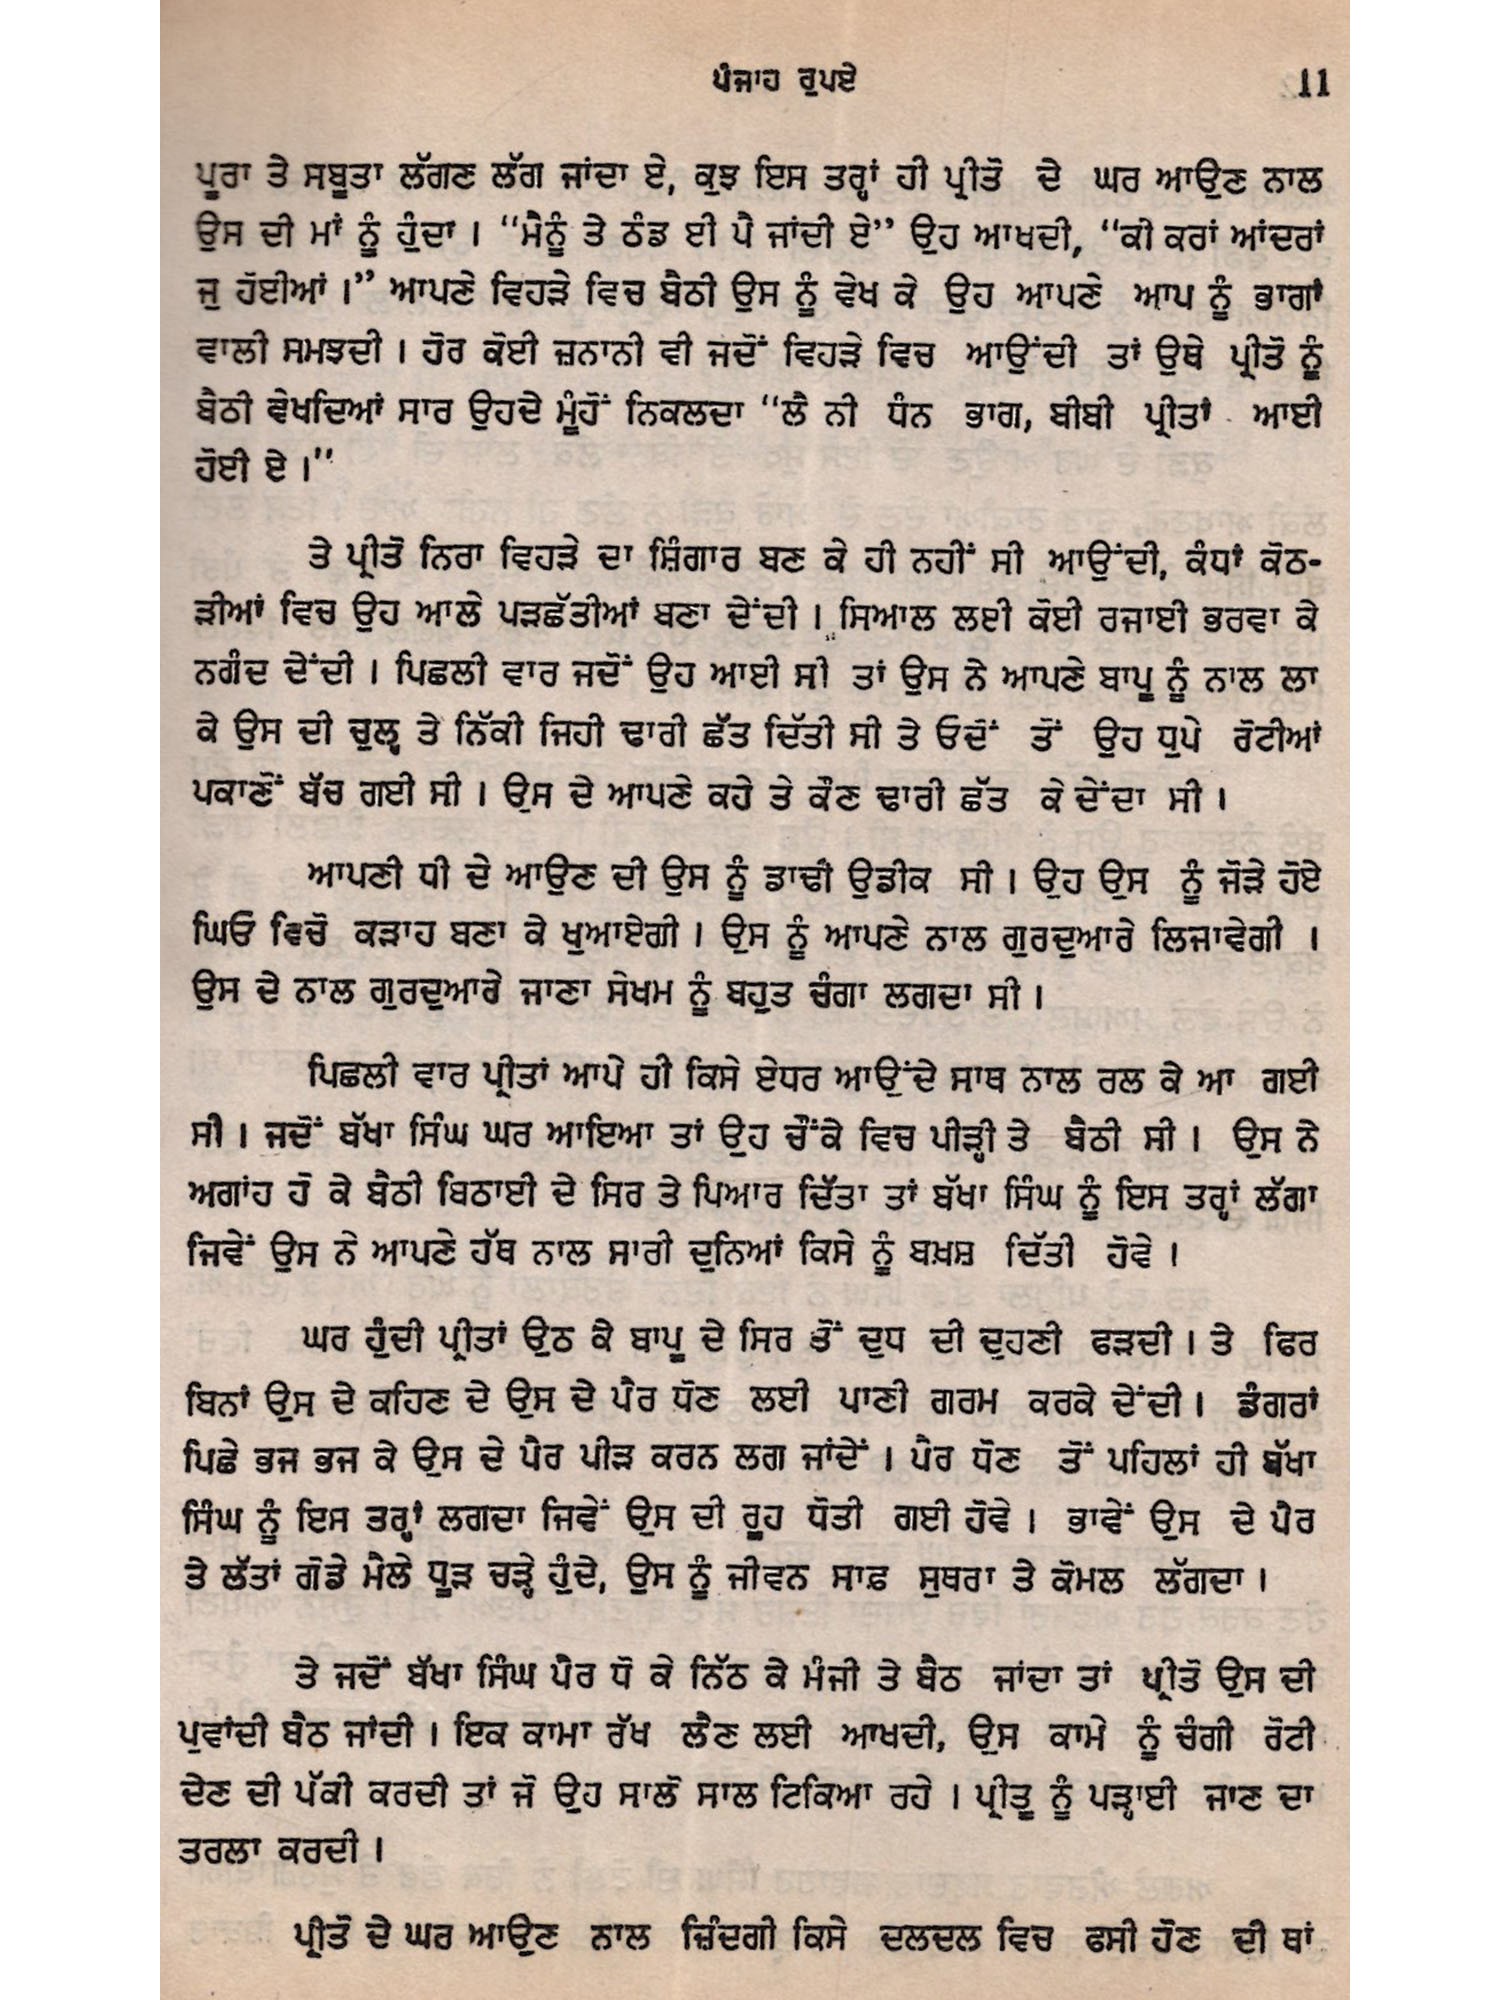 ਪੰਜਾਹ ਰੁਪਏ 11
ਪੂਰਾ ਤੇ ਸਬੂਤਾ ਲੱਗਣ ਲੱਗ ਜਾਂਦਾ ਏ, ਕੁਝ ਇਸ ਤਰ੍ਹਾਂ ਹੀ ਪ੍ਰੀਤੋ ਦੇ ਘਰ ਆਉਣ ਨਾਲ
ਉਸ ਦੀ ਮਾਂ ਨੂੰ ਹੁੰਦਾ। “ਮੈਨੂੰ ਤੇ ਠੰਡ ਈ ਪੈ ਜਾਂਦੀ ਏ” ਉਹ ਆਖਦੀ, “ਕੀ ਕਰਾਂ ਆਂਦਰਾਂ
ਜੁ ਹੋਈਆਂ।” ਆਪਣੇ ਵਿਹੜੇ ਵਿਚ ਬੈਠੀ ਉਸ ਨੂੰ ਵੇਖ ਕੇ ਉਹ ਆਪਣੇ ਆਪ ਨੂੰ ਭਾਗਾਂ
ਵਾਲੀ ਸਮਝਦੀ। ਹੋਰ ਕੋਈ ਜ਼ਨਾਨੀ ਵੀ ਜਦੋਂ ਵਿਹੜੇ ਵਿਚ ਆਉਂਦੀ ਤਾਂ ਉਥੇ ਪ੍ਰੀਤੋ ਨੂੰ
ਬੈਠੀ ਵੇਖਦਿਆਂ ਸਾਰ ਉਹਦੇ ਮੂੰਹੋਂ ਨਿਕਲਦਾ “ਲੈ ਨੀ ਧੰਨ ਭਾਗ, ਬੀਬੀ ਪ੍ਰੀਤਾਂ ਆਈ
ਹੋਈ ਏ।”
ਤੇ ਪ੍ਰੀਤੋ ਨਿਰਾ ਵਿਹੜੇ ਦਾ ਸ਼ਿੰਗਾਰ ਬਣ ਕੇ ਹੀ ਨਹੀਂ ਸੀ ਆਉਂਦੀ, ਕੰਧਾਂ ਕੋਠ-
ੜੀਆਂ ਵਿਚ ਉਹ ਆਲੇ ਪੜਛੱਤੀਆਂ ਬਣਾ ਦੇਂਦੀ। ਸਿਆਲ ਲਈ ਕੋਈ ਰਜਾਈ ਭਰਵਾ ਕੇ
ਨਗੰਦ ਦੇਂਦੀ। ਪਿਛਲੀ ਵਾਰ ਜਦੋਂ ਉਹ ਆਈ ਸੀ ਤਾਂ ਉਸ ਨੇ ਆਪਣੇ ਬਾਪੂ ਨੂੰ ਨਾਲ ਲਾ
ਕੇ ਉਸ ਦੀ ਚੁਲ੍ਹ ਤੇ ਨਿੱਕੀ ਜਿਹੀ ਢਾਰੀ ਛੱਤ ਦਿੱਤੀ ਸੀ ਤੇ ਓਦੋਂ ਤੋਂ ਉਹ ਧੁਪੇ ਰੋਟੀਆਂ
ਪਕਾਣੋਂ ਬੱਚ ਗਈ ਸੀ। ਉਸ ਦੇ ਆਪਣੇ ਕਹੇ ਤੇ ਕੌਣ ਢਾਰੀ ਛੱਤ ਕੇ ਦੇਂਦਾ ਸੀ।
ਆਪਣੀ ਧੀ ਦੇ ਆਉਣ ਦੀ ਉਸ ਨੂੰ ਡਾਢੀ ਉਡੀਕ ਸੀ। ਉਹ ਉਸ ਨੂੰ ਜੋੜੇ ਹੋਏ
ਘਿਓ ਵਿਚੋਂ ਕੜਾਹ ਬਣਾ ਕੇ ਖੁਆਏਗੀ। ਉਸ ਨੂੰ ਆਪਣੇ ਨਾਲ ਗੁਰਦੁਆਰੇ ਲਿਜਾਵੇਗੀ।
ਉਸ ਦੇ ਨਾਲ ਗੁਰਦੁਆਰੇ ਜਾਣਾ ਸੇਖਮ ਨੂੰ ਬਹੁਤ ਚੰਗਾ ਲਗਦਾ ਸੀ।
ਪਿਛਲੀ ਵਾਰ ਪ੍ਰੀਤਾਂ ਆਪੇ ਹੀ ਕਿਸੇ ਏਧਰ ਆਉਂਦੇ ਸਾਥ ਨਾਲ ਰਲ ਕੇ ਆ ਗਈ
ਸੀ। ਜਦੋਂ ਬੱਖਾ ਸਿੰਘ ਘਰ ਆਇਆ ਤਾਂ ਉਹ ਚੌਂਕੇ ਵਿਚ ਪੀੜ੍ਹੀ ਤੇ ਬੈਠੀ ਸੀ। ਉਸ ਨੇ
ਅਗਾਂਹ ਹੋ ਕੇ ਬੈਠੀ ਬਿਠਾਈ ਦੇ ਸਿਰ ਤੇ ਪਿਆਰ ਦਿੱਤਾ ਤਾਂ ਬੱਖਾ ਸਿੰਘ ਨੂੰ ਇਸ ਤਰ੍ਹਾਂ ਲੱਗਾ
ਜਿਵੇਂ ਉਸ ਨੇ ਆਪਣੇ ਹੱਥ ਨਾਲ ਸਾਰੀ ਦੁਨਿਆਂ ਕਿਸੇ ਨੂੰ ਬਖ਼ਸ਼ ਦਿੱਤੀ ਹੋਵੇ।
ਘਰ ਹੁੰਦੀ ਪ੍ਰੀਤਾਂ ਉਠ ਕੇ ਬਾਪੂ ਦੇ ਸਿਰ ਤੋਂ ਦੁਧ ਦੀ ਦੁਹਣੀ ਫੜਦੀ। ਤੇ ਫਿਰ
ਬਿਨਾਂ ਉਸ ਦੇ ਕਹਿਣ ਦੇ ਉਸ ਦੇ ਪੈਰ ਧੋਣ ਲਈ ਪਾਣੀ ਗਰਮ ਕਰਕੇ ਦੇਂਦੀ। ਡੰਗਰਾਂ
ਪਿਛੇ ਭਜ ਭਜ ਕੇ ਉਸ ਦੇ ਪੈਰ ਪੀੜ ਕਰਨ ਲਗ ਜਾਂਦੇਂ। ਪੈਰ ਧੋਣ ਤੋਂ ਪਹਿਲਾਂ ਹੀ ਬੱਖਾ
ਸਿੰਘ ਨੂੰ ਇਸ ਤਰ੍ਹਾਂ ਲਗਦਾ ਜਿਵੇਂ ਉਸ ਦੀ ਰੂਹ ਧੋਤੀ ਗਈ ਹੋਵੇ। ਭਾਵੇਂ ਉਸ ਦੇ ਪੈਰ
ਤੇ ਲੱਤਾਂ ਗੋਡੇ ਮੈਲੇ ਧੂੜ ਚੜ੍ਹੇ ਹੁੰਦੇ, ਉਸ ਨੂੰ ਜੀਵਨ ਸਾਫ਼ ਸੁਥਰਾ ਤੇ ਕੋਮਲ ਲੱਗਦਾ।
ਤੇ ਜਦੋਂ ਬੱਖਾ ਸਿੰਘ ਪੈਰ ਧੋ ਕੇ ਨਿੱਠ ਕੇ ਮੰਜੀ ਤੇ ਬੈਠ ਜਾਂਦਾ ਤਾਂ ਪ੍ਰੀਤੋ ਉਸ ਦੀ
ਪੁਵਾਂਦੀ ਬੈਠ ਜਾਂਦੀ। ਇਕ ਕਾਮਾ ਰੱਖ ਲੈਣ ਲਈ ਆਖਦੀ, ਉਸ ਕਾਮੇ ਨੂੰ ਚੰਗੀ ਰੋਟੀ
ਦੇਣ ਦੀ ਪੱਕੀ ਕਰਦੀ ਤਾਂ ਜੋ ਉਹ ਸਾਲੋ ਸਾਲ ਟਿਕਿਆ ਰਹੇ। ਪ੍ਰੀਤੂ ਨੂੰ ਪੜ੍ਹਾਈ ਜਾਣ ਦਾ
ਤਰਲਾ ਕਰਦੀ।
ਪ੍ਰੀਤੋ ਦੇ ਘਰ ਆਉਣ ਨਾਲ ਜ਼ਿੰਦਗੀ ਕਿਸੇ ਦਲਦਲ ਵਿਚ ਫਸੀ ਹੋਣ ਦੀ ਥਾਂ